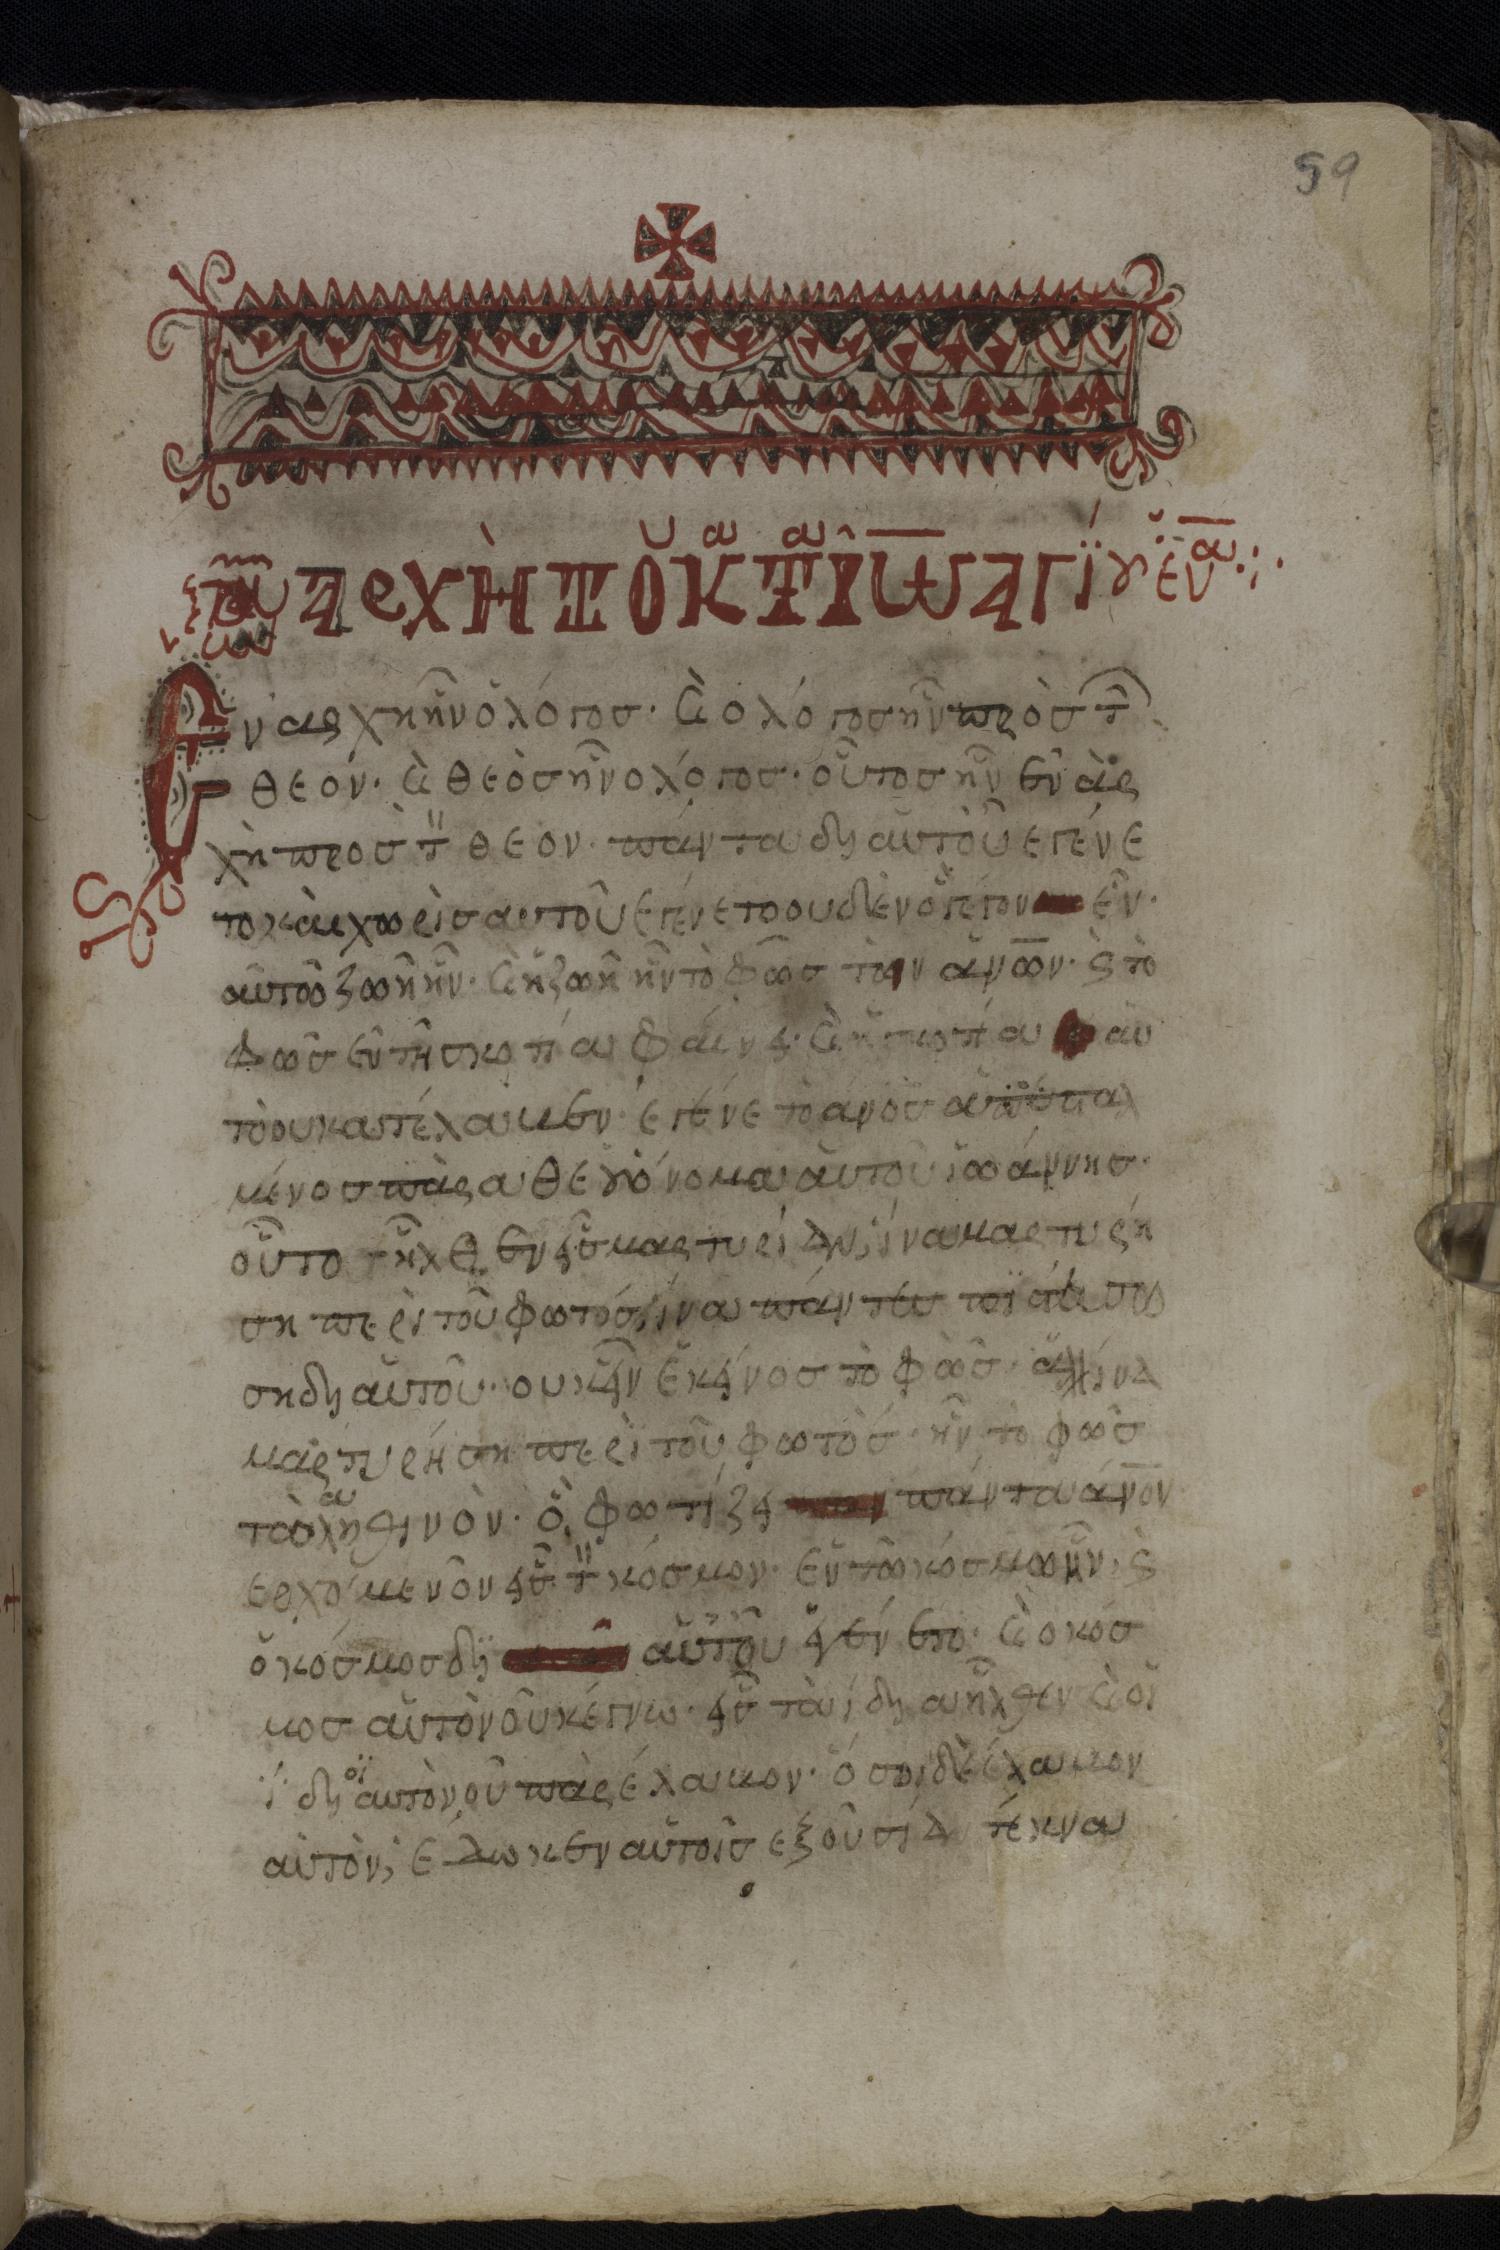 59
ἀρχὴ τοῦ κατὰ ἰω ἁγίου εὐα
Ἐν ἀρχη ἦν ὁ λόγοσ· κ̀ ο λόγοσ ἦν πρὸσ τ̂
θεόν· κ̀ θεὸσ ἦν ο λόγοσ· οὗτοσ ἦν ἐν ἀρ
χὴ προσ τ̏ θεον· πάντα δη αὐτοῦ εγένε
το καὶ χωρὶσ αυτοῦ εγένετο ουδὲν ὃ γέγον ἐν·
αὐτῶ ζωὴ ἦν· κ̀ ἡ ζωὴ ἦν τὸ φῶσ τὸν ἀν̅ων· κ̀ τὸ
φῶσ εν τῆ σκοτία φαίνει· κ̀ ἡ σκοτία αυ
τὸ ου κατέλαμεν· ἐγένετο ἀνοσ ἀπεσταλ
μένοσ παρα θεοῦ ὁνομα αὐτοῦ ϊωάννησ·
οὗτοσ ἦλθεν εἰσ μαρτυρίαν, ίνα μαρτυρή
ση περὶ τοῦ φωτόσ, ίνα πάντεσ πϊστευσ
ση δη αὐτοῦ· ουκ ἦν ἐκεῖνοσ τὸ φῶσ· ἀλλ ίνα
μαρτυρήση περὶ τοῦ φωτὸσ· ἦν τὸ φῶσ
τὸ ἀληθινὸν· ὃ φωτίζει πάντα άν̅ον
ερχόμενον εἰσ τ̏ κόσμον· ἐν τῶ κόσμω ἦν, κ̀
ὁ κόσμοσ δϊ αὐτοῦ ἐγένετο· κ̀ ο κόσ
μοσ αὐτὸν οὐκ έγνω· εἰσ τὰ ίδηα ἦλθεν κ̀ οἱ
ίδηοϊ αὐτὸν οὐ παρέλαμον· ὅσοι δὲ έλαμον
αὐτὸν, έδωκεν αὐτοῖσ εξουσίαν τέκνα